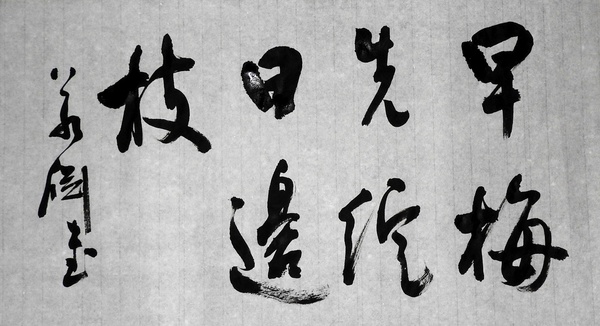 早梅
先綻
日邊
枝